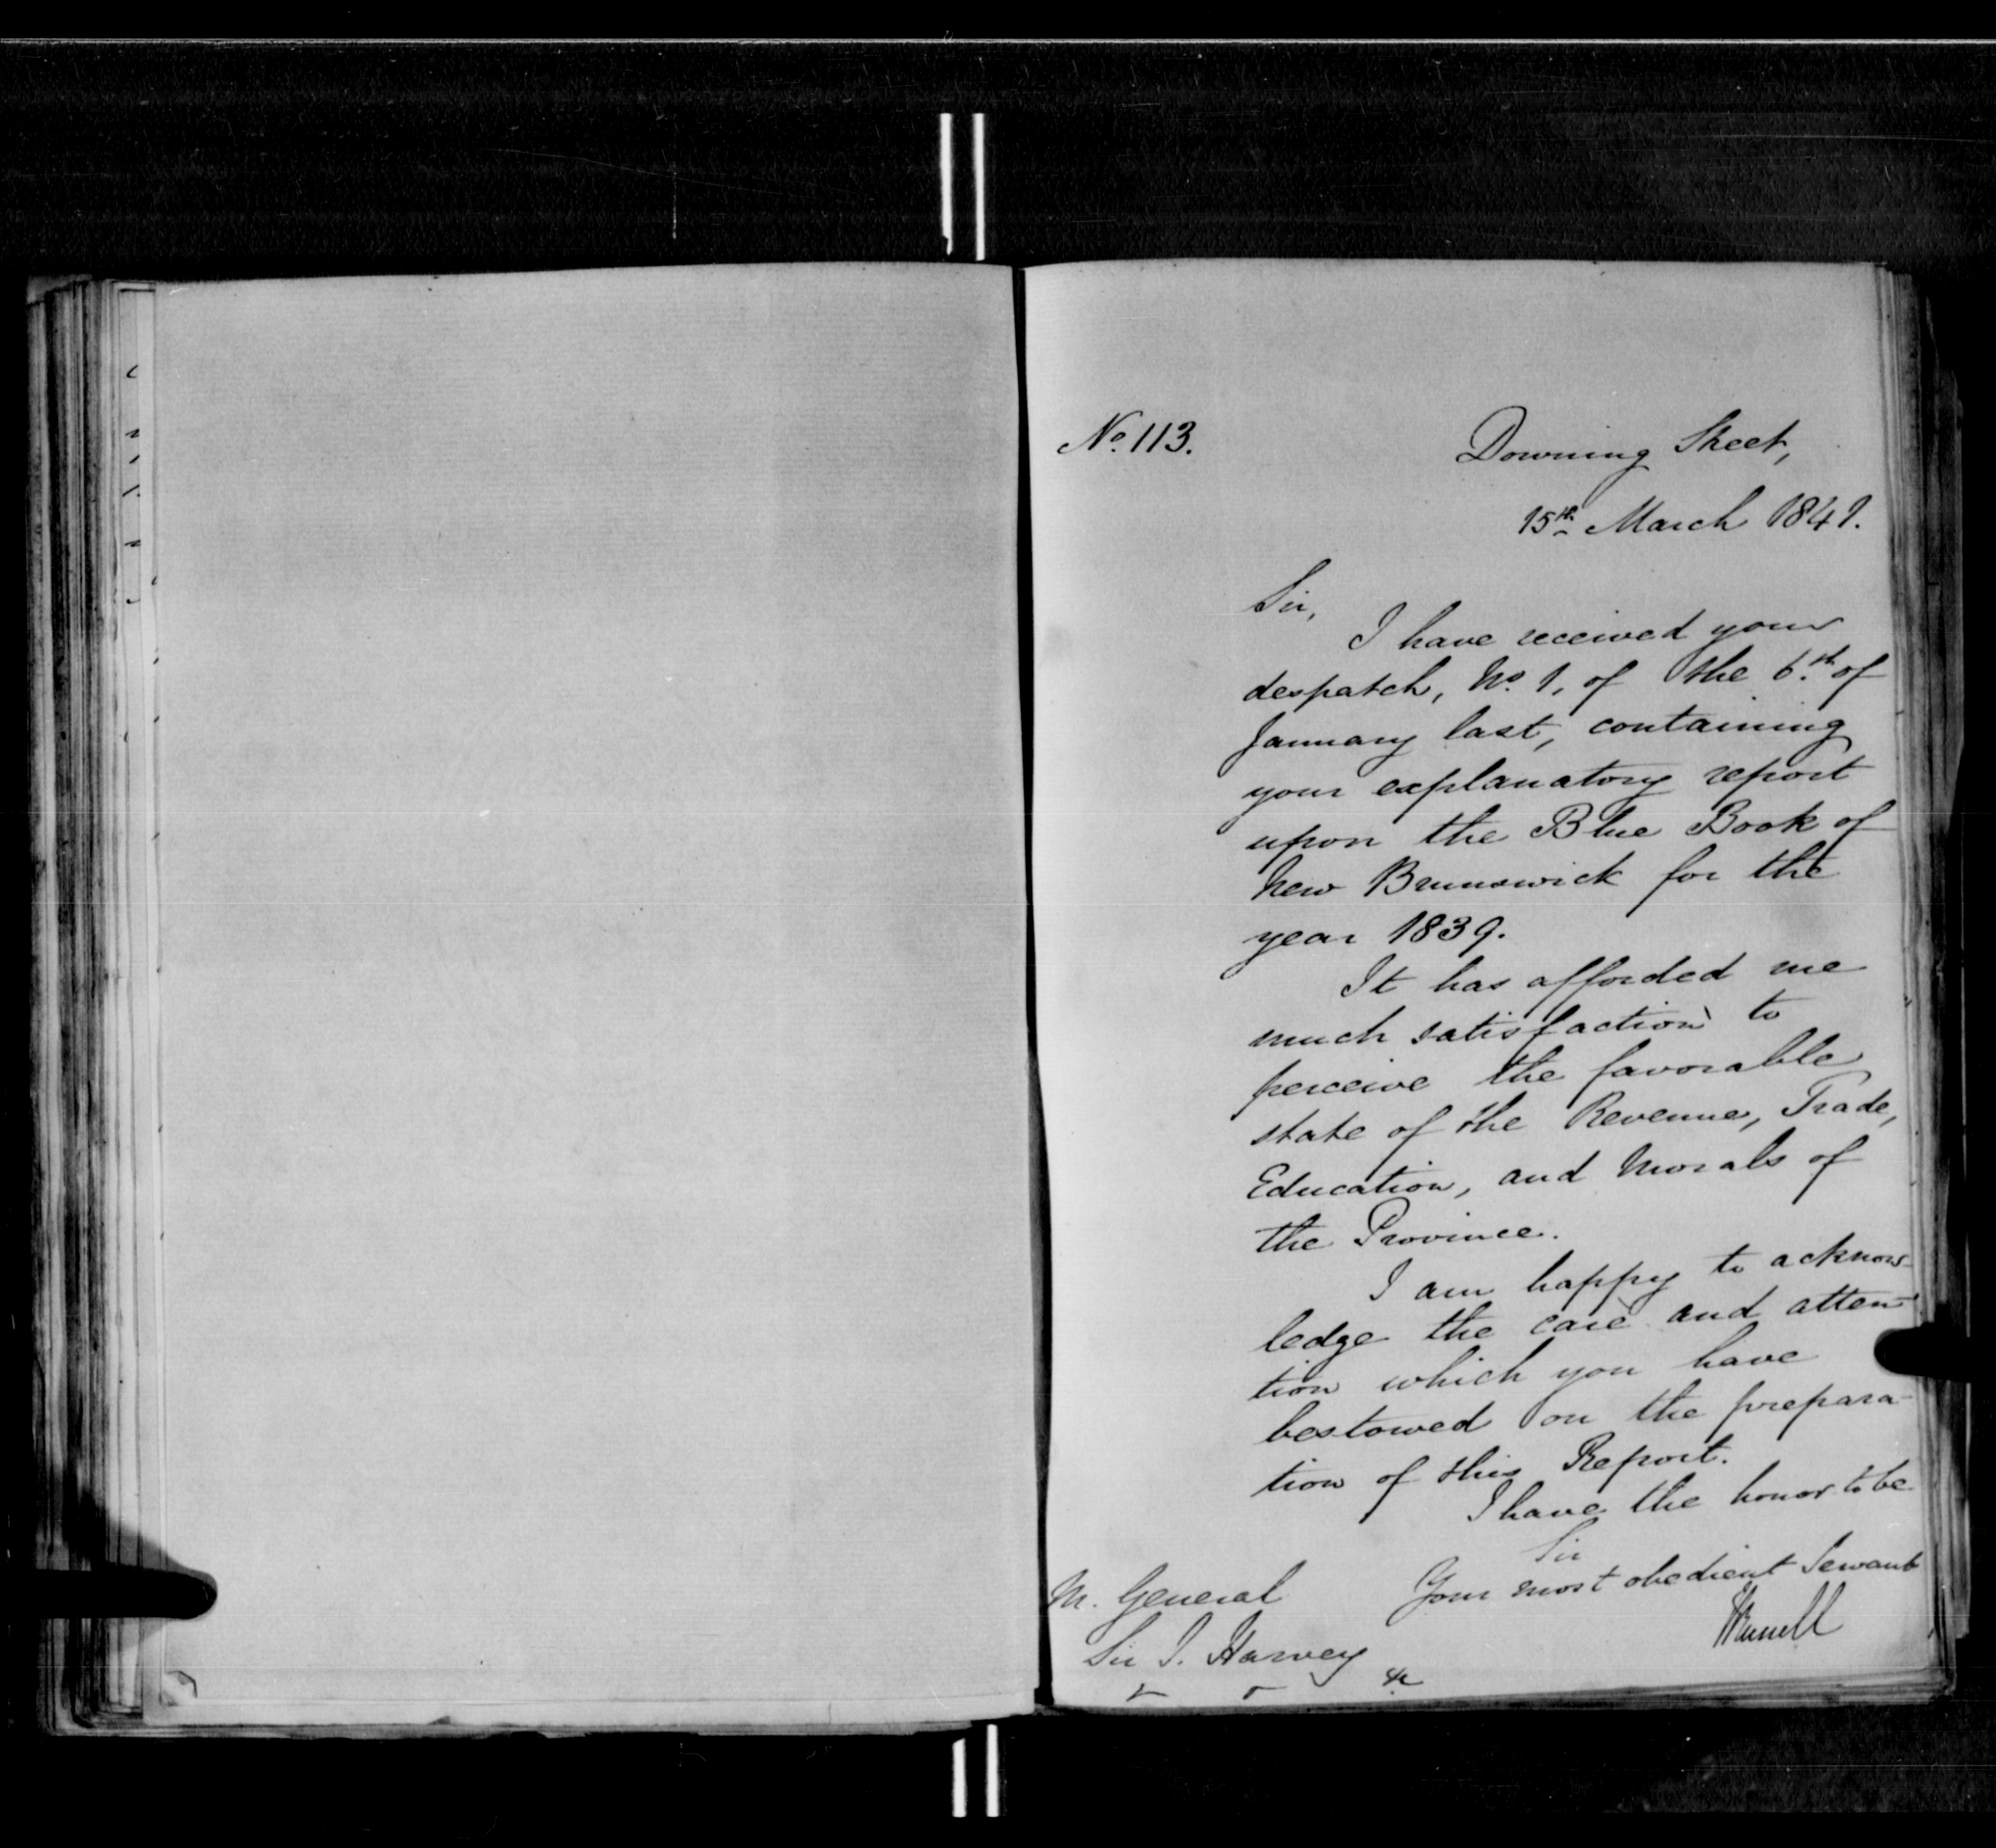 No. 113.
Downing Street,
15th March 1841.
Sir,
I have received your
despatch, No. 1, of the 6th of
January last, containing
your explanatory report
upon the Blue Book of
New Brunswick for the
year 1839.
It has afforded me
much satisfaction to
perceive the favorable
state of the Revenue, Trade,
Education, and Morals of
the Province.
I am happy to acknow-
ledge the care and atten-
tion which you have
bestowed on the prepara-
tion of this Report.
I have the honor to be
Sir
Your most obedient Servant
JRussell
M. General
Sir J. Harvey
&c